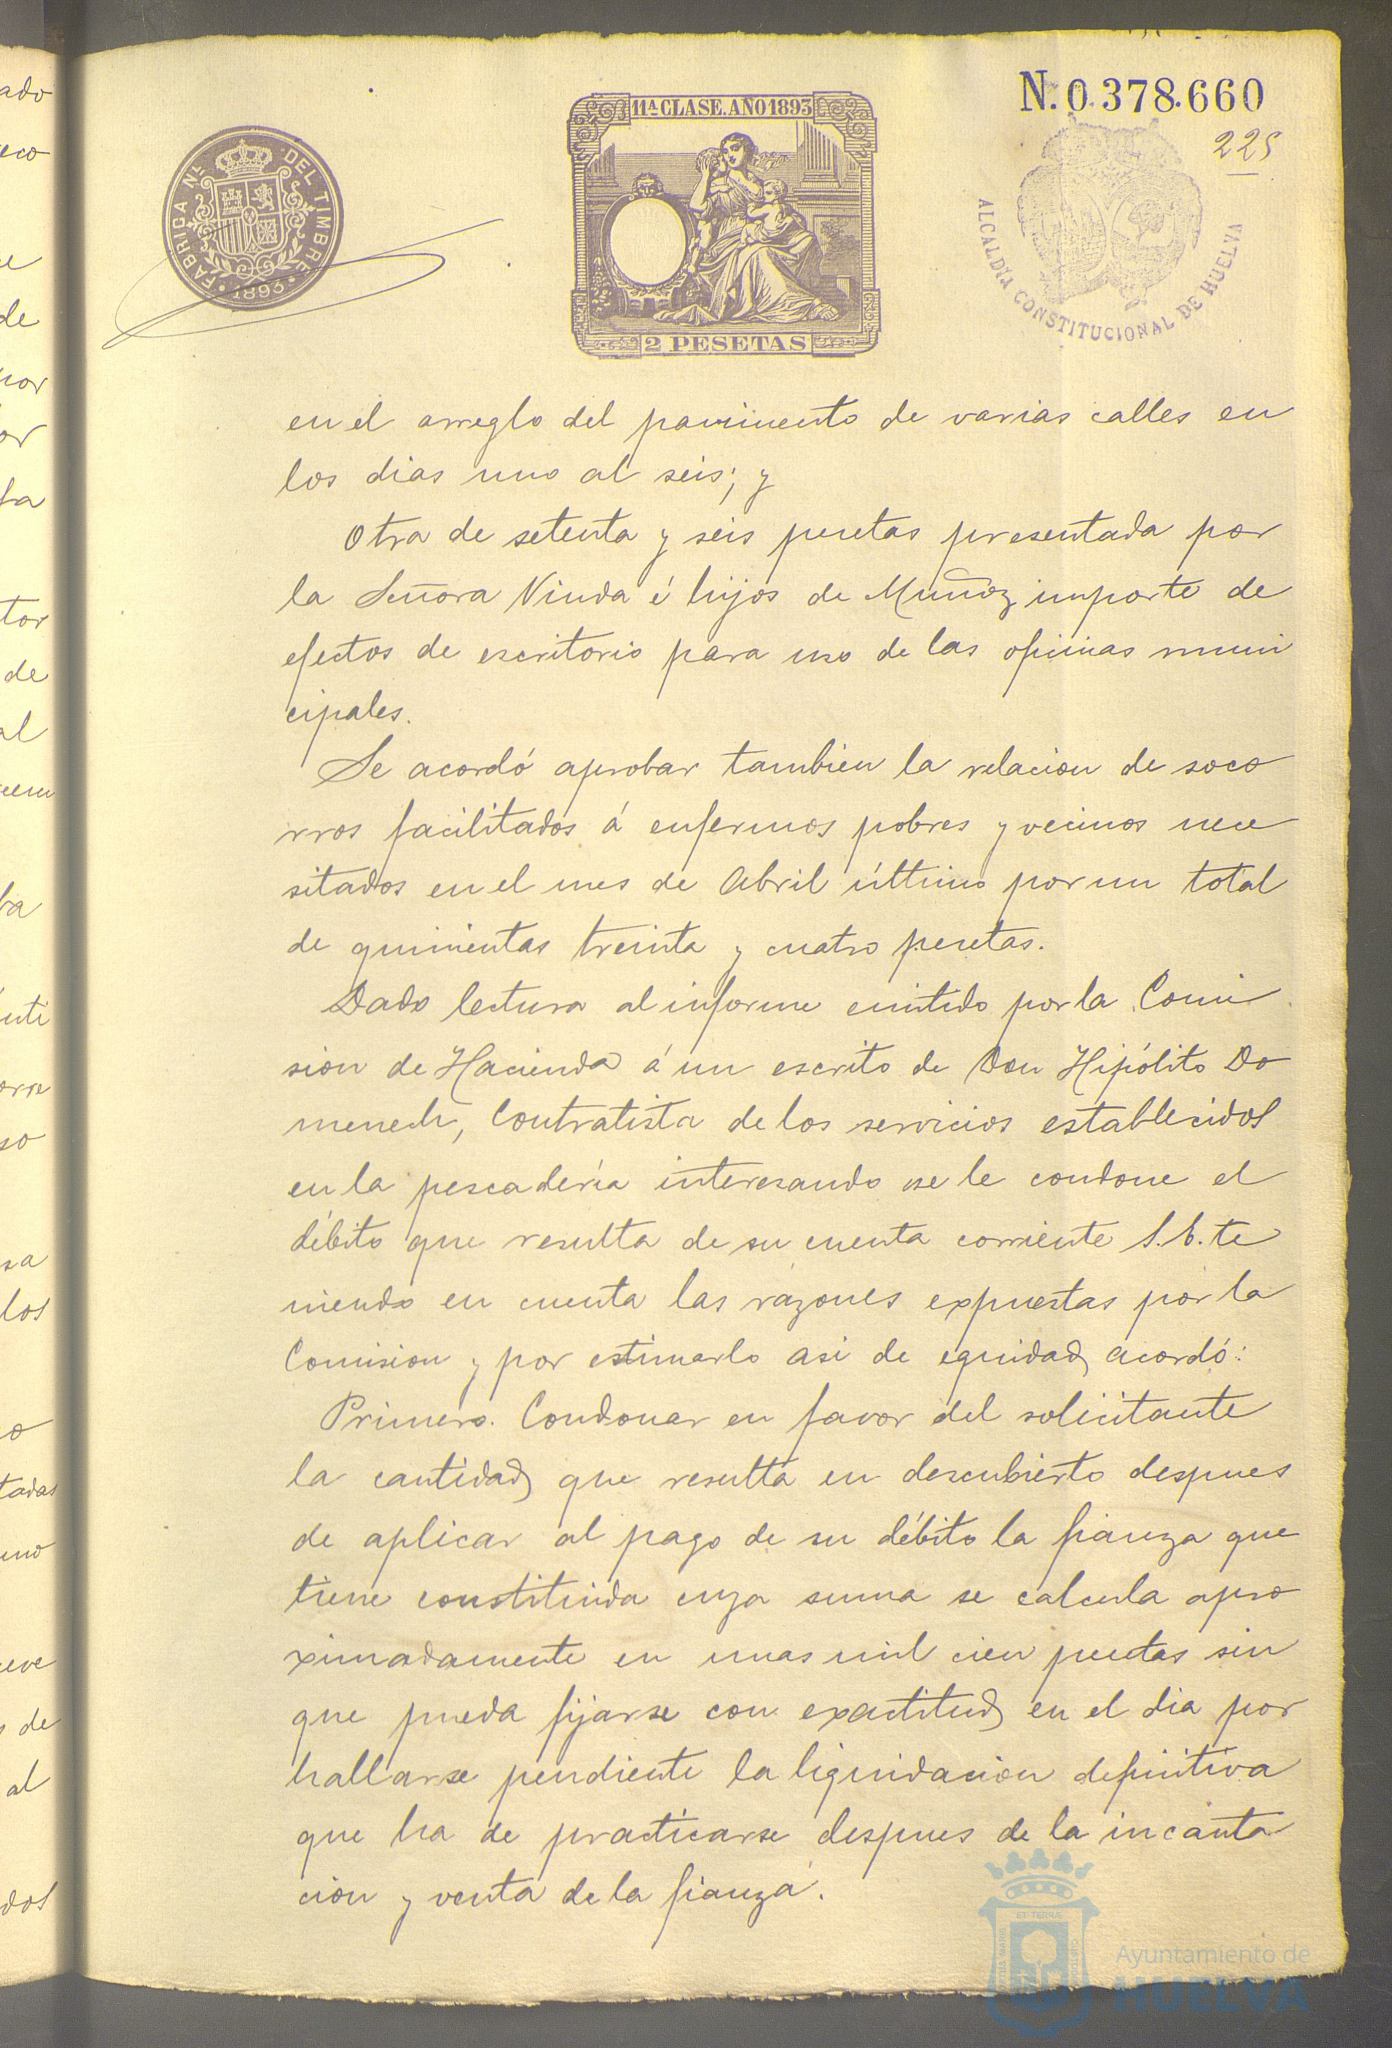 N.0.378.660
225
11ª CLASE. AÑO 1893
FÁBRICA Nl. DEL TIMBRE
1893
2 PESETAS
ALCALDÍA CONSTITUCIONAL DE HUELVA
en el arreglo del pavimento de varias calles en
los dias uno al seis; y
Otra de setenta y seis pesetas presentada por
la Señora Viuda é hijos de Muñoz importe de
efectos de escritorio para uso de las oficinas muni
cipales.
Se acordó aprobar tambien la relacion de soco
rros facilitados á enfermos pobres y vecinos nece
sitados en el mes de Abril último por un total
de quinientas treinta y cuatro pesetas.
Dado lectura al informe emitido por la Comi
sion de Hacienda á un escrito de Don Hipólito Do
menech, Contratista de los servicios establecidos
en la pescadería interesando se le condone el
débito que resulta de su cuenta corriente S.E. te
niendo en cuenta las razones expuestas por la
Comision y por estimarlo asi de equidad, acordó:
Primero. Condonar en favor del solicitante
la cantidad que resulta en descubierto despues
de aplicar al pago de su débito la fianza que
tiene constituida cuya suma se calcula apro
ximadamente en unas mil cien pesetas sin
que pueda fijarse con exactitud en el dia por
hallarse pendiente la liquidacion definitiva
que ha de practicarse despues de la incauta
cion y venta de la fianza.
Ayuntamiento de
HUELVA